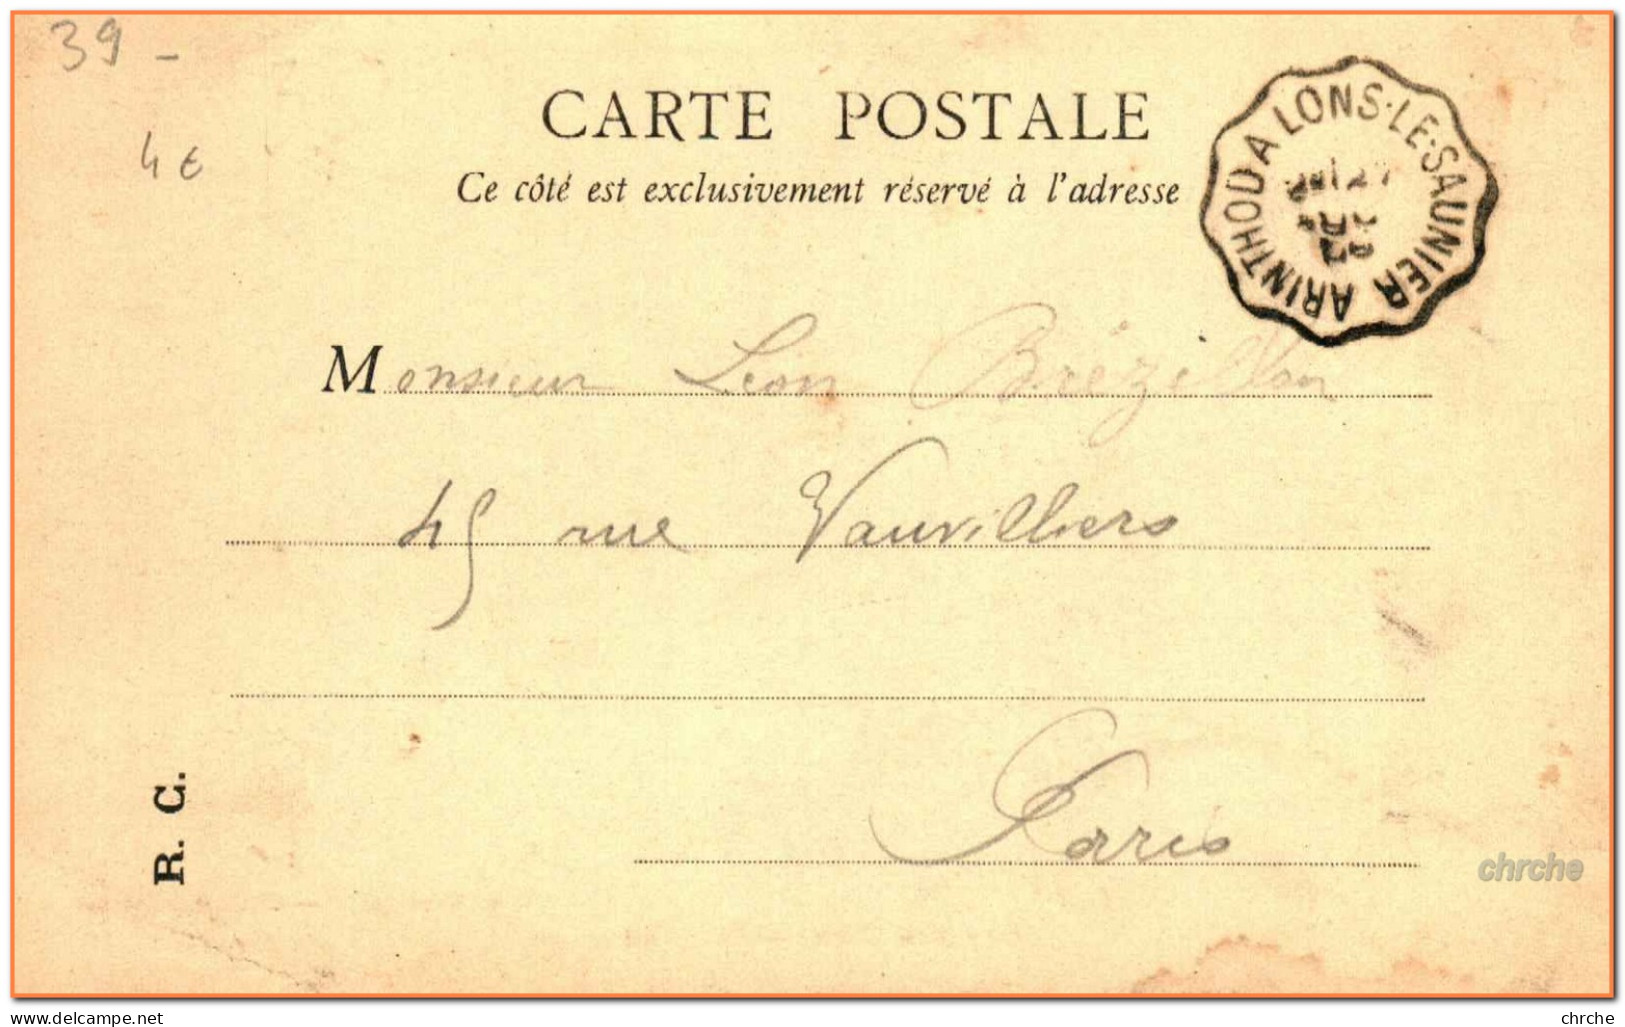 39 -
4 €
CARTE POSTALE
Ce côté est exclusivement réservé à l'adresse
ARINTHOD A LONS-LE-SAUNIER
Monsieur Léon Brézillon
45 rue Vauvilliers
Paris
R. C.
chrche
www.delcampe.net
chrche